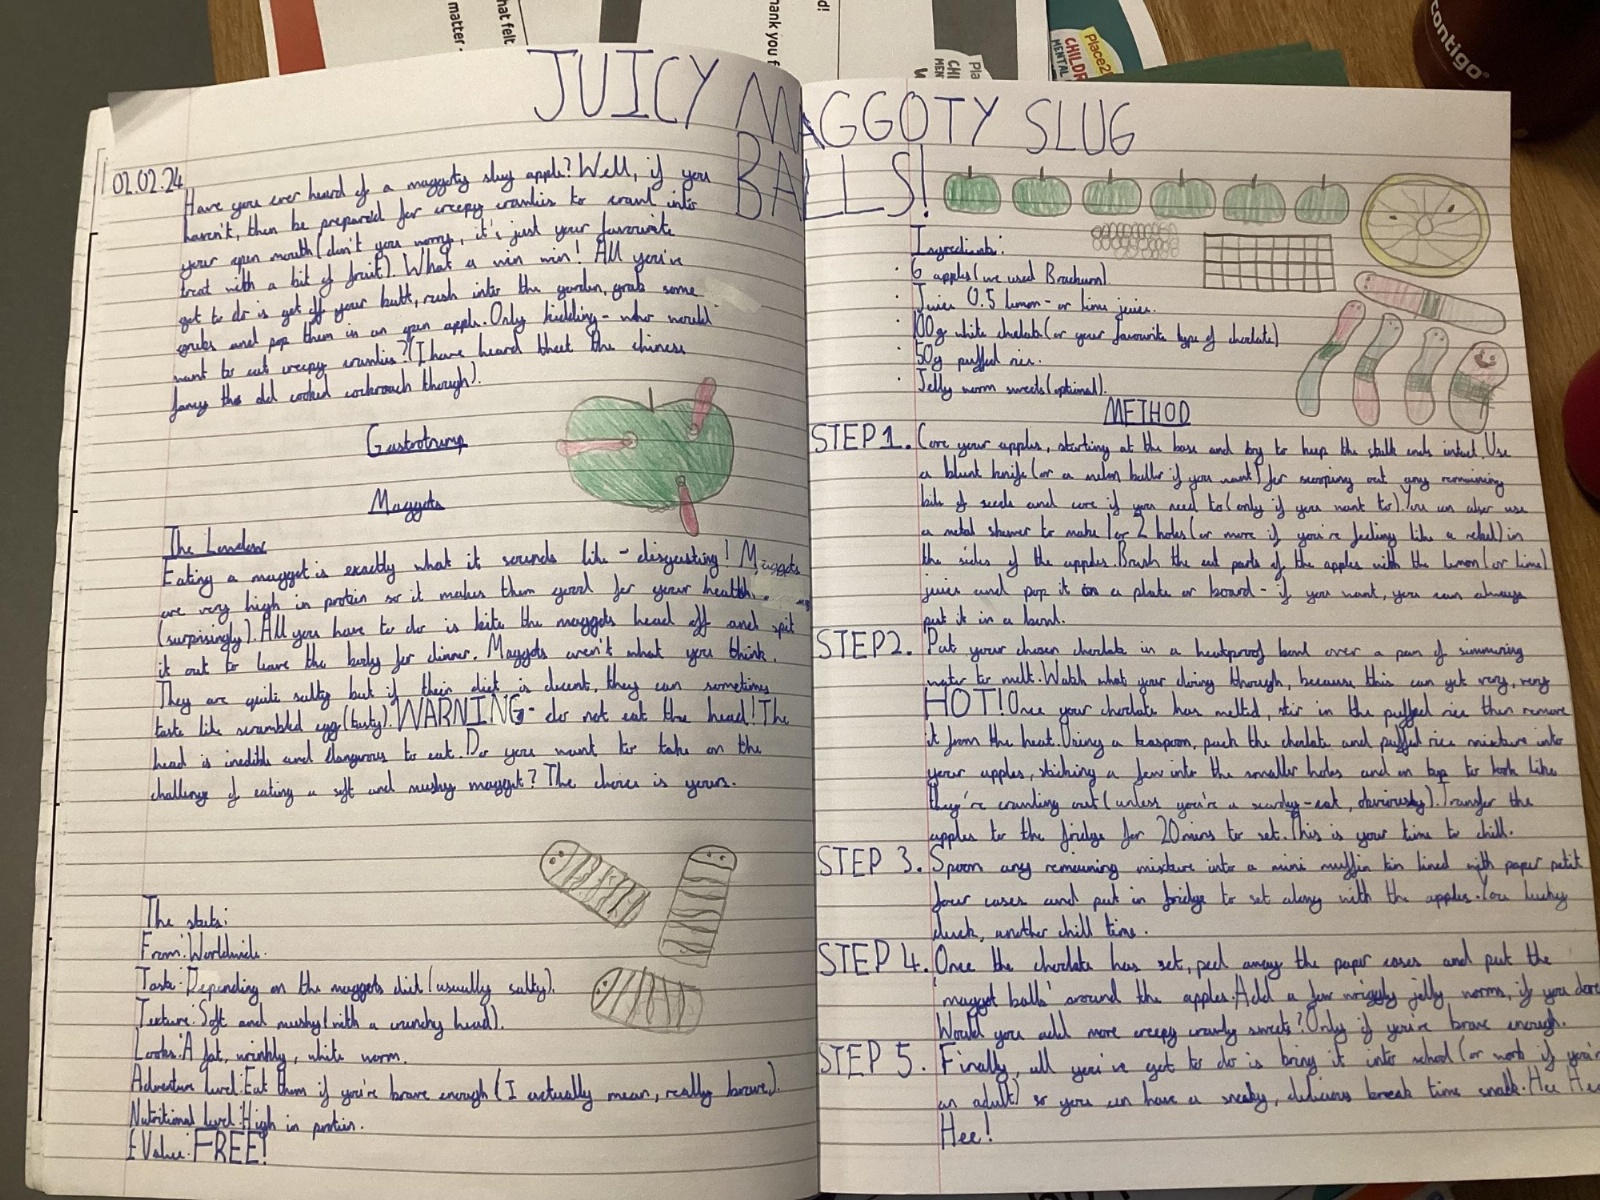 matter -
hat felt
hank you f
d!
Pla
CHI
MEN
Place2
CHILDR
MENTAL
contigo
JUICY MAGGOTY SLUG
BALLS!
02.02.24
Have you ever heard of a maggoty slug apple? Well, if you
haven't, then be prepared for creepy crawlies to crawl into
your open mouth (don't you worry, it's just your favourite
treat with a bit of fruit). What a win win! All you've
got to do is get off your butt, rush into the garden, grab some
grubs and pop them in an open apple. Only kidding - who would
want to eat creepy crawlies? (I have heard that the chinese
fancy the old cooked cockroach though).
Gastrotrump
Maggots
The Lowdown
Eating a maggot is exactly what it sounds like - disgusting! Maggots
are very high in protein so it makes them good for your health
(surprisingly). All you have to do is bite the maggots head off and spit
it out to leave the body for dinner. Maggots aren't what you think.
They are quite salty but if their diet is decent, they can sometimes
taste like scrambled egg (tasty). WARNING - do not eat the head! The
head is inedible and dangerous to eat. Do you want to take on the
challenge of eating a soft and mushy maggot? The choice is yours.
The stats:
From: Worldwide.
Taste: Depending on the maggots diet (usually salty).
Texture: Soft and mushy (with a crunchy head).
Looks: A fat, wrinkly, white worm.
Adventure level: Eat them if you're brave enough (I actually mean, really brave).
Nutritional level: High in protein.
£ Value: FREE!
Ingredients:
· 6 apples (we used Braeburn)
· Juice 0.5 lemon - or lime juice.
· 100g white chocolate (or your favourite type of chocolate)
· 50g puffed rice.
· Jelly worm sweets (optional).
METHOD
STEP 1. Core your apples, starting at the base and try to keep the stalk ends intact. Use
a blunt knife (or a melon baller if you want) for scooping out any remaining
bits of seeds and core if you need to (only if you want to). You can also use
a metal skewer to make 1 or 2 holes (or more if you're feeling like a rebel) in
the sides of the apples. Brush the cut parts of the apples with the lemon (or lime)
juice and pop it on a plate or board - if you want, you can always
put it in a bowl.
STEP 2. Put your chosen chocolate in a heatproof bowl over a pan of simmering
water to melt. Watch what your doing though, because this can get very, very
HOT! Once your chocolate has melted, stir in the puffed rice then remove
it from the heat. Using a teaspoon, pack the chocolate and puffed rice mixture into
your apples, sticking a few into the smaller holes and on top to look like
they're crawling out (unless you're a scaredy-cat, obviously). Transfer the
apples to the fridge for 20mins to set. This is your time to chill.
STEP 3. Spoon any remaining mixture into a mini muffin tin lined with paper petit
four cases and put in fridge to set along with the apples. You lucky
duck, another chill time.
STEP 4. Once the chocolate has set, peel away the paper cases and put the
'maggot balls' around the apples. Add a few wriggly jelly worms, if you dare
Would you add more creepy crawly sweets? Only if you're brave enough.
STEP 5. Finally, all you've got to do is bring it into school (or work if you're
an adult) so you can have a sneaky, delicious break time snack. Hee Hee
Hee!